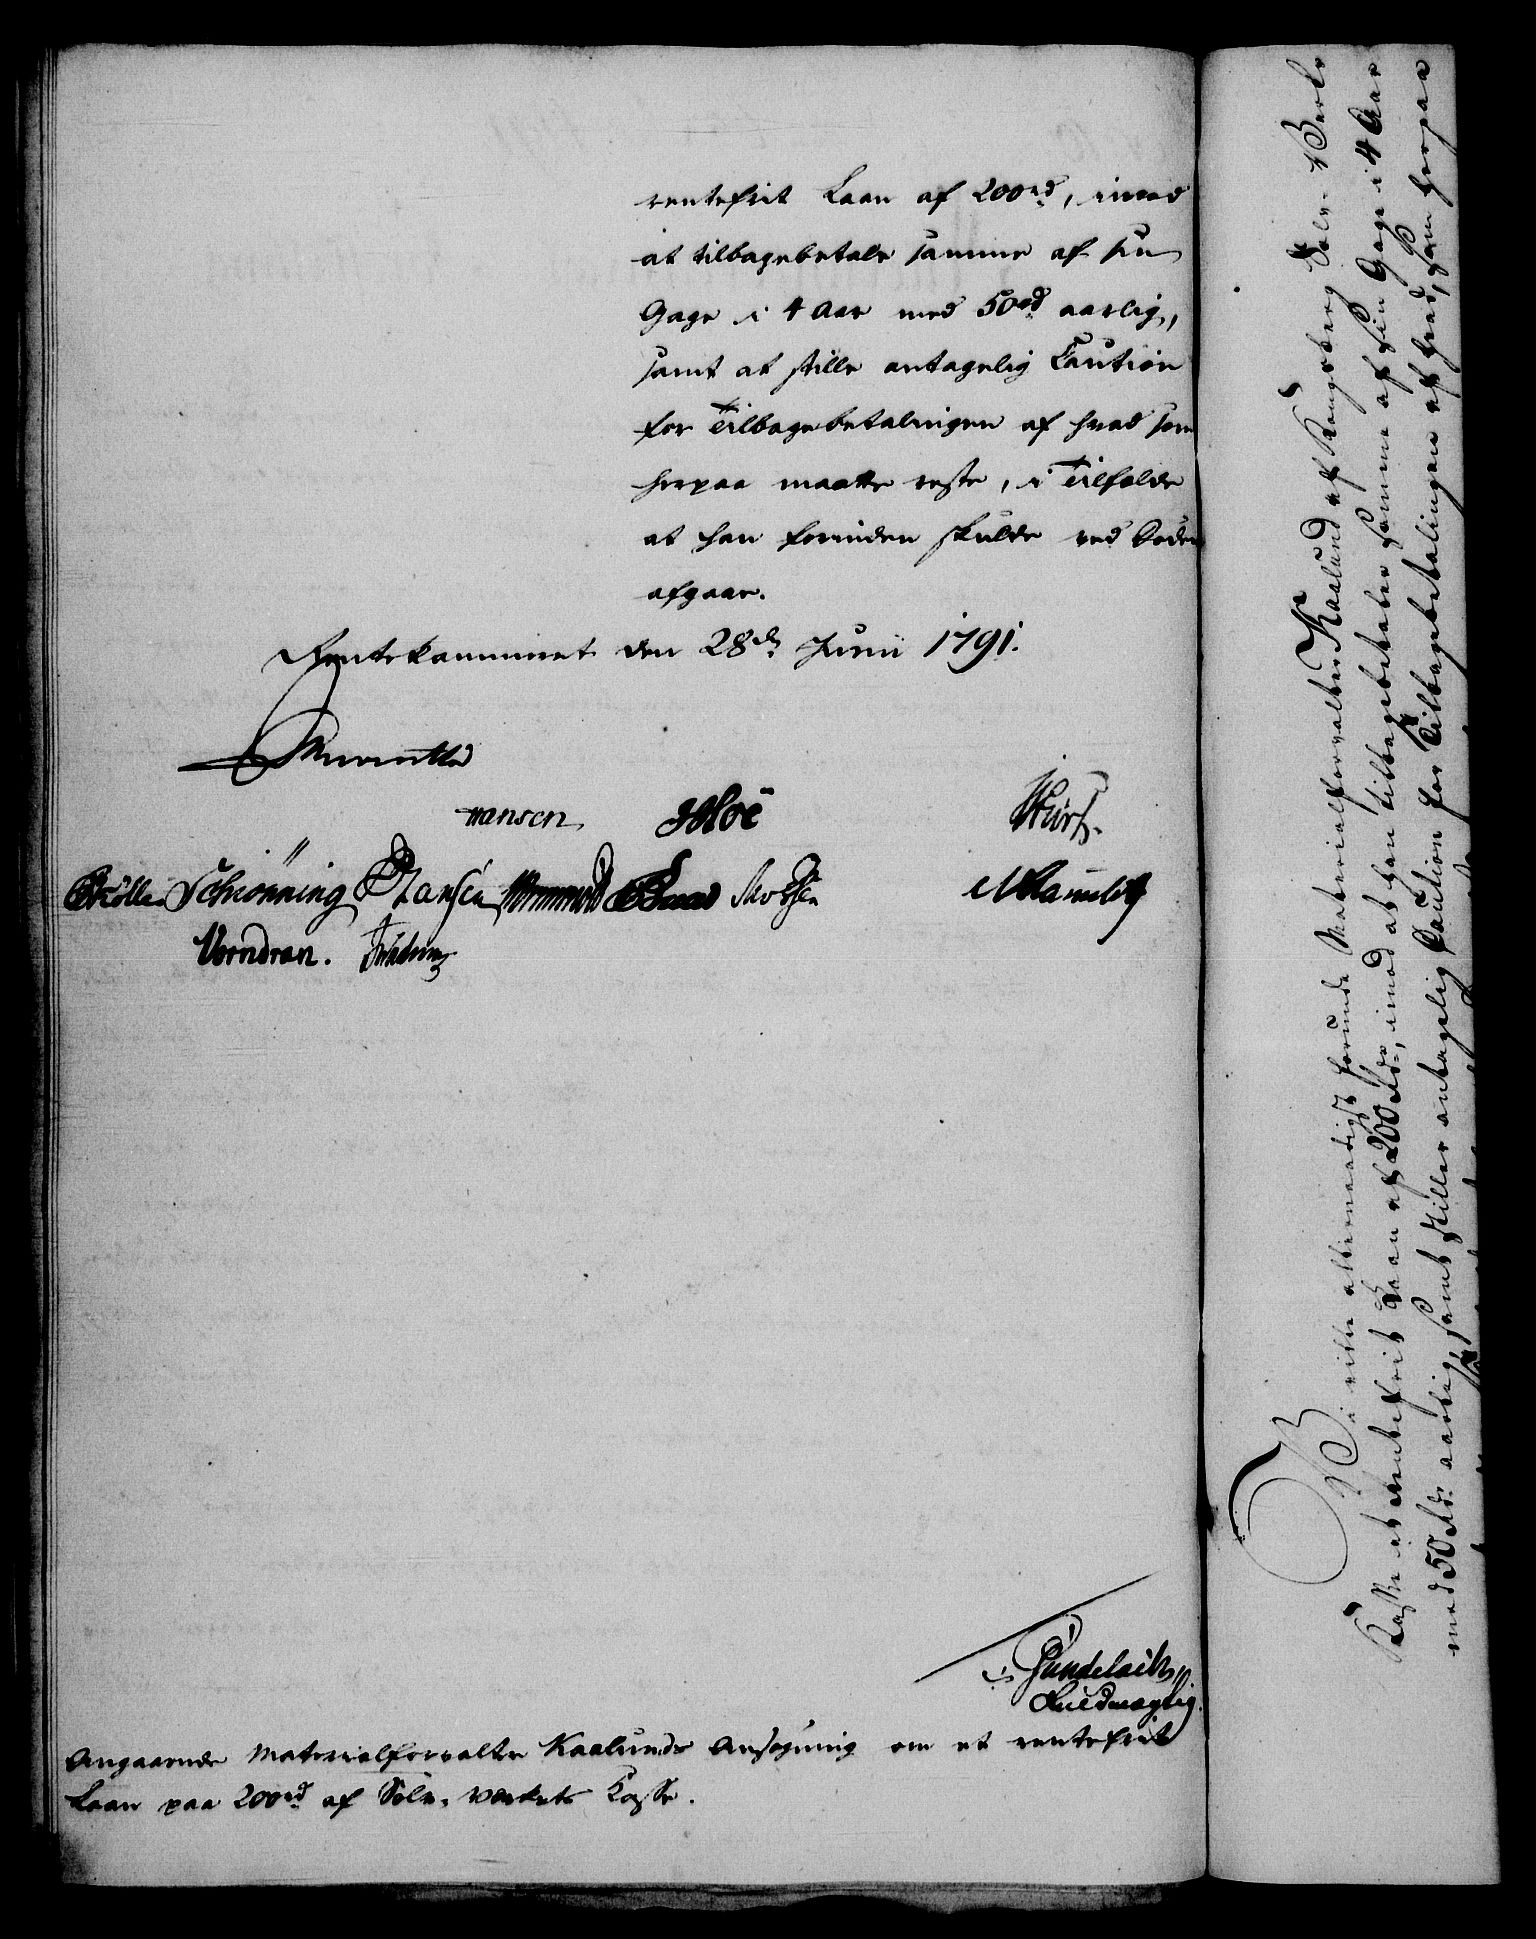 rentefrit Laan af 200 rd, imod
at tilbagebetale samme af sin
Gage i 4 Aar med 50 rd aarlig,
samt at stille antagelig Caution
for Tilbagebetalingen af hvad som
herpaa maatte reste, i Tilfælde
at han forinden skulde ved Døden
afgaae.
Rentekammeret den 28de Junii 1791.
Hansen
Schiønning Hansen
Vorndran.
Gundelach
Fuldmægtig.
Angaaende Materialforvalter Kaalunds Ansøgning om et rentefrit
Laan paa 200 rd af Sølv-Værkets Casse.
Vi ville allernaadigst forunde Materialforvalter Kaalund af Kongsberg Sølv-Verks
Kasse et rentefrit Laan af 200 Rdr, imod at han tilbagebetaler samme af sin Gage i 4 Aar
med 50 Rdr aarlig, samt stiller antagelig Caution for Tilbagebetalingen af hvad, som herpaa